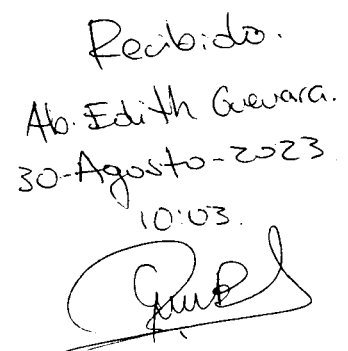 Recibido.
Ab. Edith Guevara.
30-Agosto-2023
10:03.